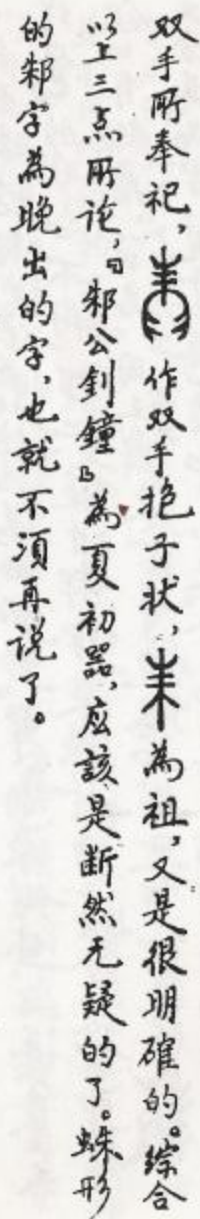 双手所奉祀，作双手抱子状，为祖，又是很明確的。綜合
以上三点所论，『邾公釗鐘』為夏初器，应該是断然无疑的了。蛛形
的邾字為晚出的字，也就不須再说了。